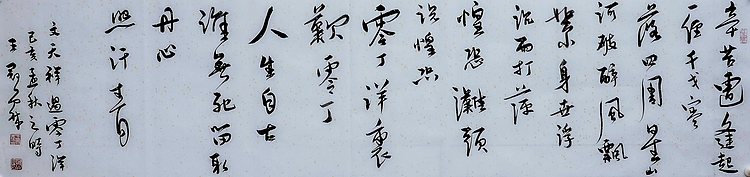 辛苦遭逢起
一經干戈寥
落四周星山
河破碎風飄
絮身世浮
沉雨打萍
惶恐灘頭
説惶恐
零丁洋裏
歎零丁
人生自古
誰無死留取
丹心
照汗青
文天祥過零丁洋
己亥孟秋之時
王